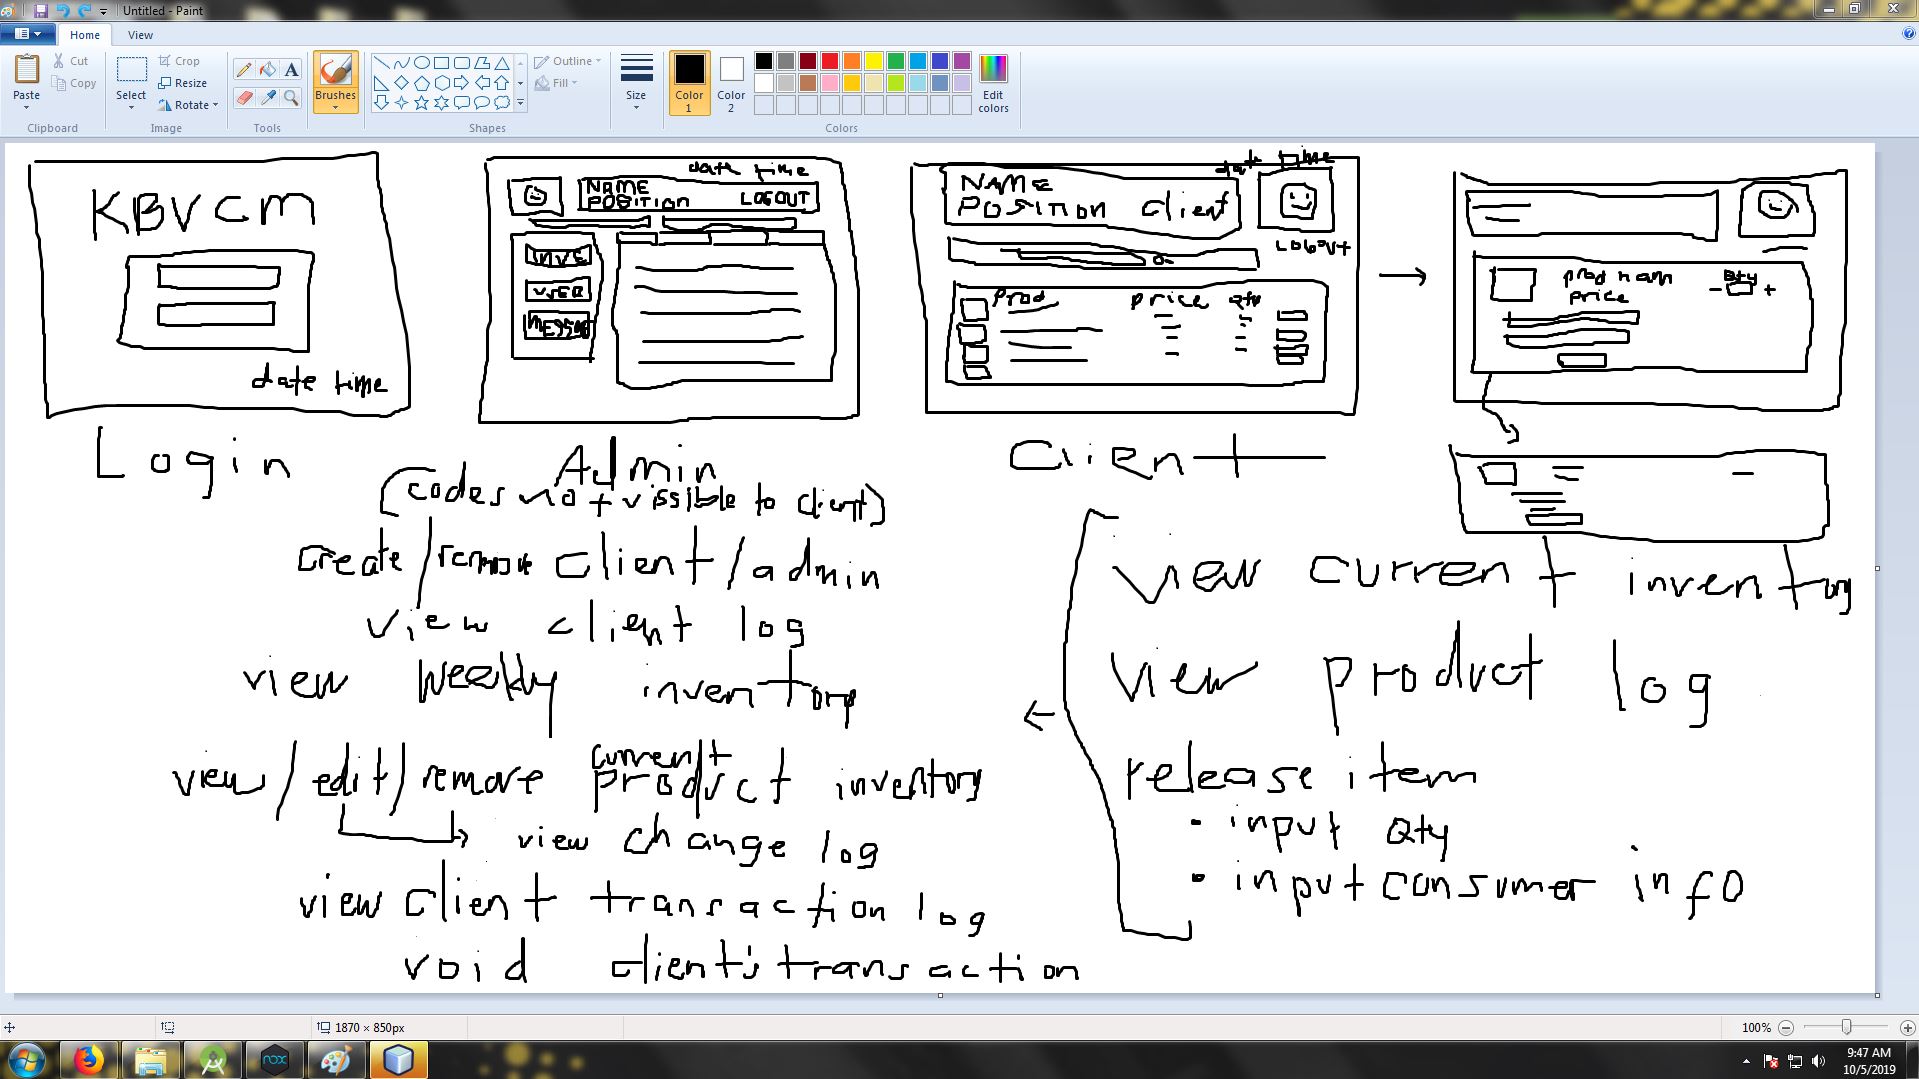 Untitled - Paint
Home
View
Paste
Cut
Copy
Clipboard
Select
Crop
Resize
Rotate
Image
Tools
Brushes
Shapes
Outline
Fill
Size
Color 1
Color 2
Edit colors
Colors
KBVCM
date time
Login
date time
NAME
POSITION LOGOUT
INVE
USER
MESSAGE
Admin
(codes not vissible to client)
create/remove client/admin
view client log
view weekly inventory
view/edit/remove current product inventory
view change log
view client transaction log
void client's transaction
date time
NAME
POSITION client
LOGOUT
Prod Price Qty
Client
prod nam Qty
price - +
view current inventory
view product log
release item
• input Qty
• input consumer info
1870 × 850px
100%
nox
9:47 AM
10/5/2019